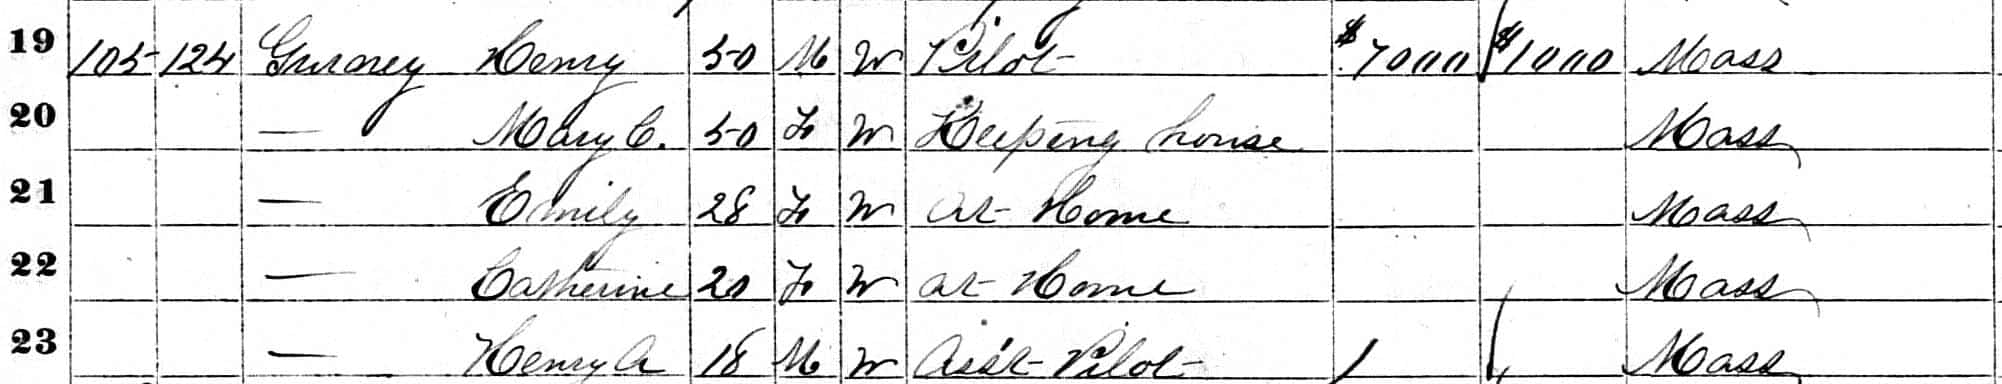 19 105 124 Gurney Henry 50 M W Pilot $7000 $1000 Mass
20 — Mary C. 50 F W Keeping house Mass
21 — Emily 28 F W at Home Mass
22 — Catherine 20 F W at Home Mass
23 — Henry A 18 M W Asst Pilot Mass